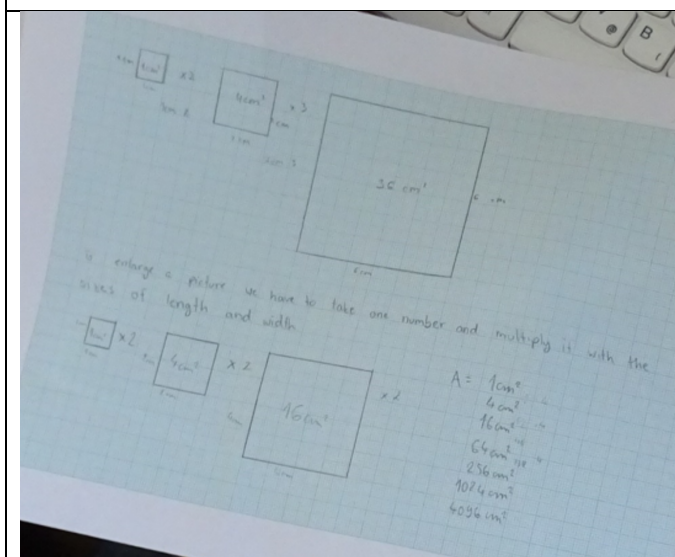 1cm² x2 4cm² x3
36 cm²
cm
6cm
enlarge a picture we have to take one number and multiply it with the
sizes of length and width
1cm² x2 4cm² x2 16cm² x2
A = 1cm²
4cm²
16cm²
64cm²
256cm²
1024cm²
4096cm²
B
@